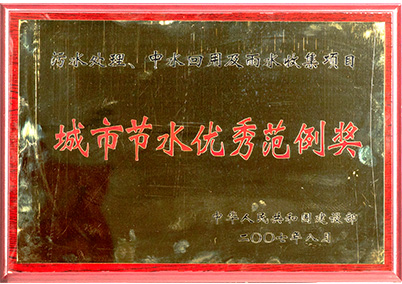 污水处理、中水回用及雨水收集项目
城市节水优秀范例奖
中华人民共和国建设部
二〇〇七年八月